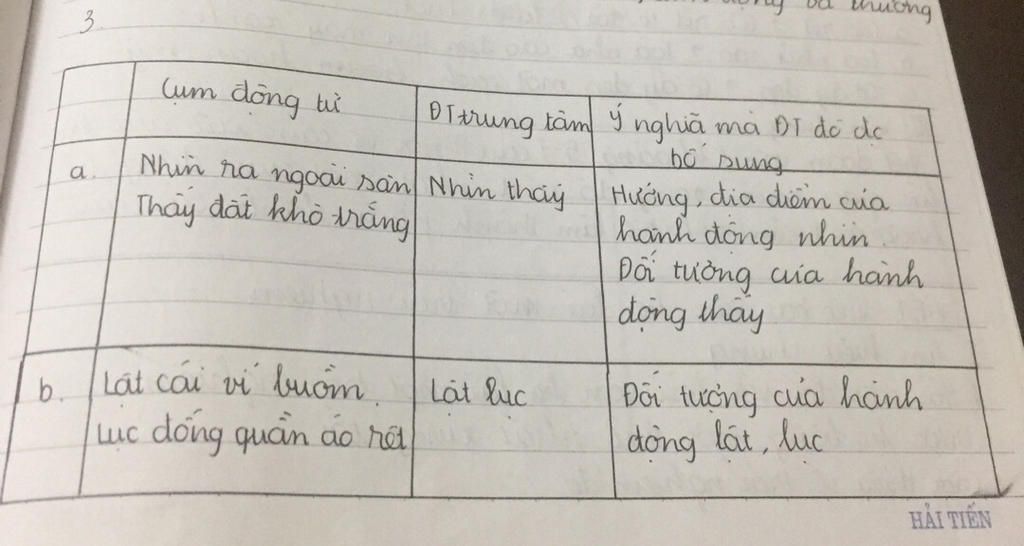 bà thương
3.
Cụm động từ
ĐT trung tâm
Ý nghĩa mà ĐT đó đc
bổ sung
a.
Nhìn ra ngoài sân
Thấy đất khô trắng
Nhìn thấy
Hướng, địa điểm của
hành động nhìn.
Đối tượng của hành
động thấy
b.
Lật cái vỉ buồm.
Lục đống quần áo rét
Lật lục
Đối tượng của hành
động lật, lục
HẢI TIẾN